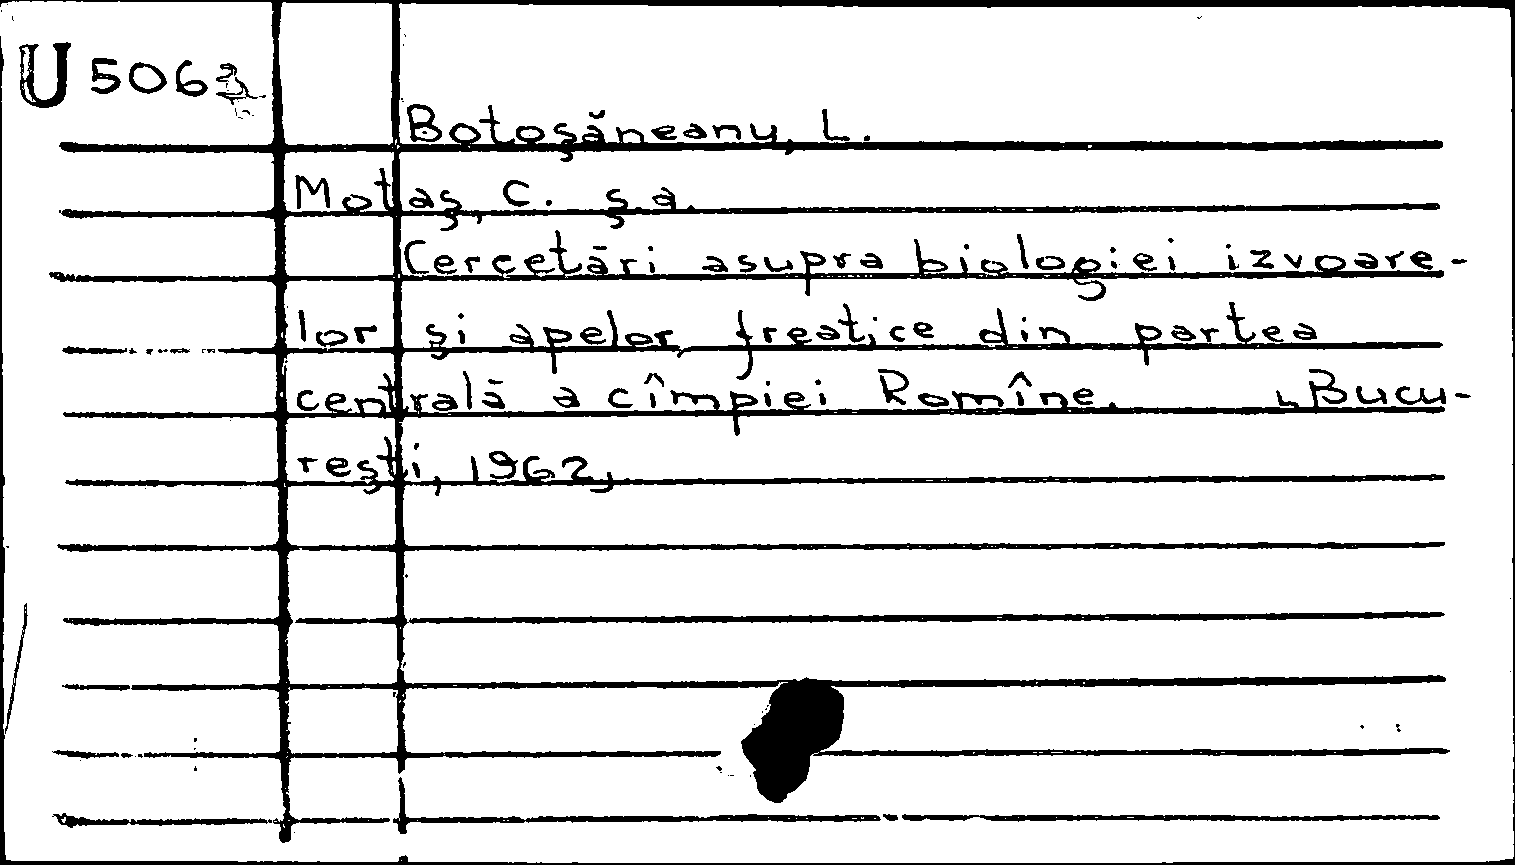 U 5063
Botoşăneanu, L.
Motaş, C. ş.a.
Cercetări asupra biologiei izvoare-
lor şi apelor freatice din partea
centrală a cîmpiei Romîne. „Bucu-
reşti, 1962,